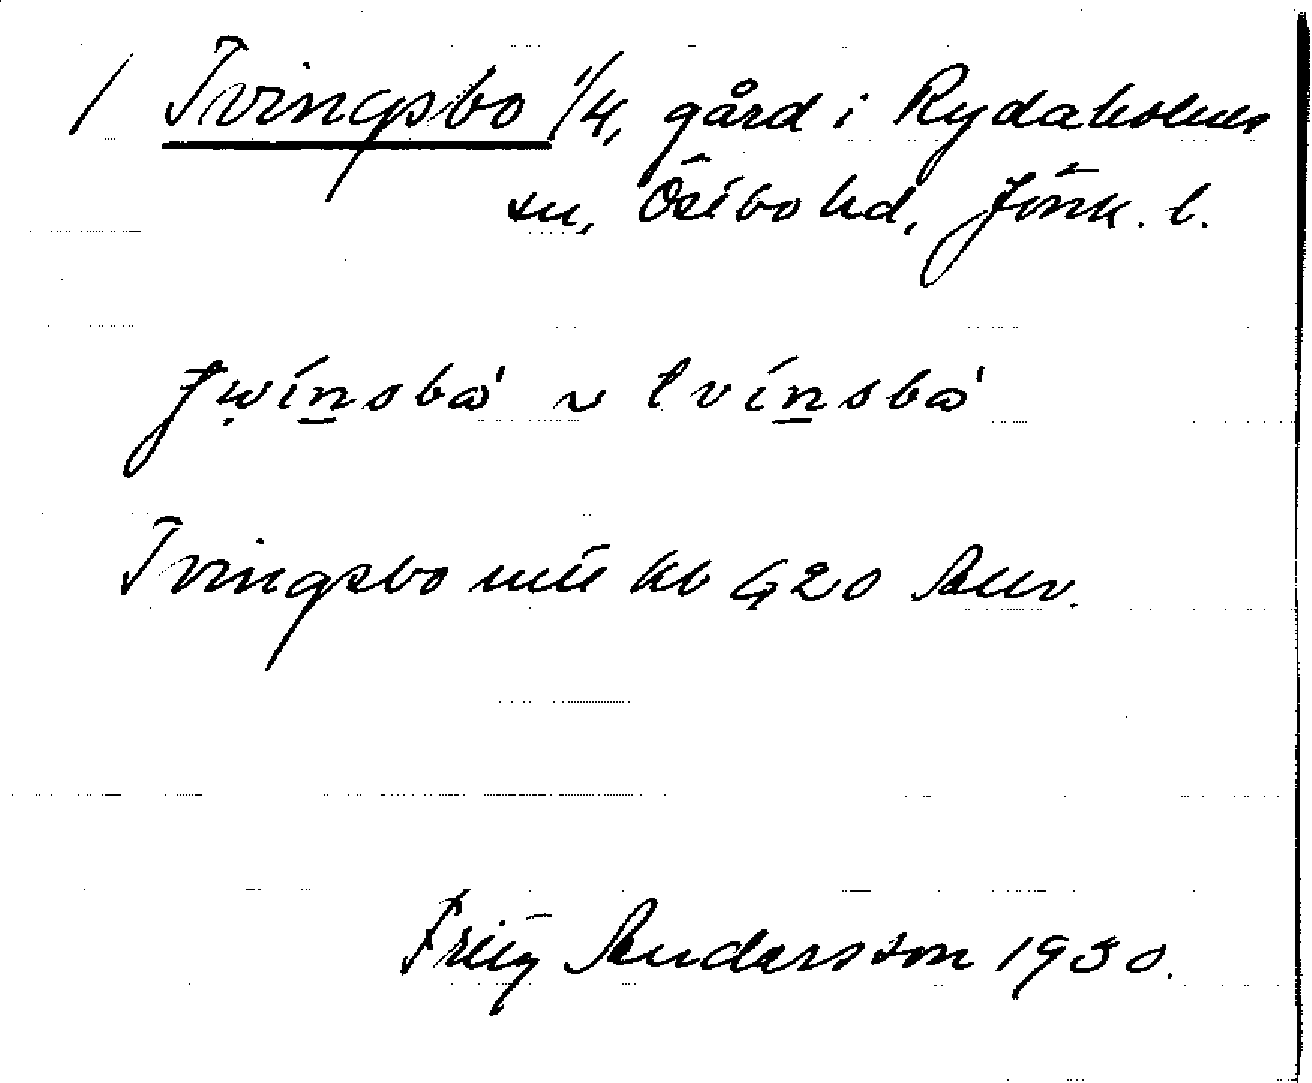 / Tvingsbo 1/4, gård i Rydaholms
sn, Östbo hd, Jönk. l.
tvínsbo ~ tvínsbo
Tvingsbo mtl kb 420
Fritz Andersson 1930.